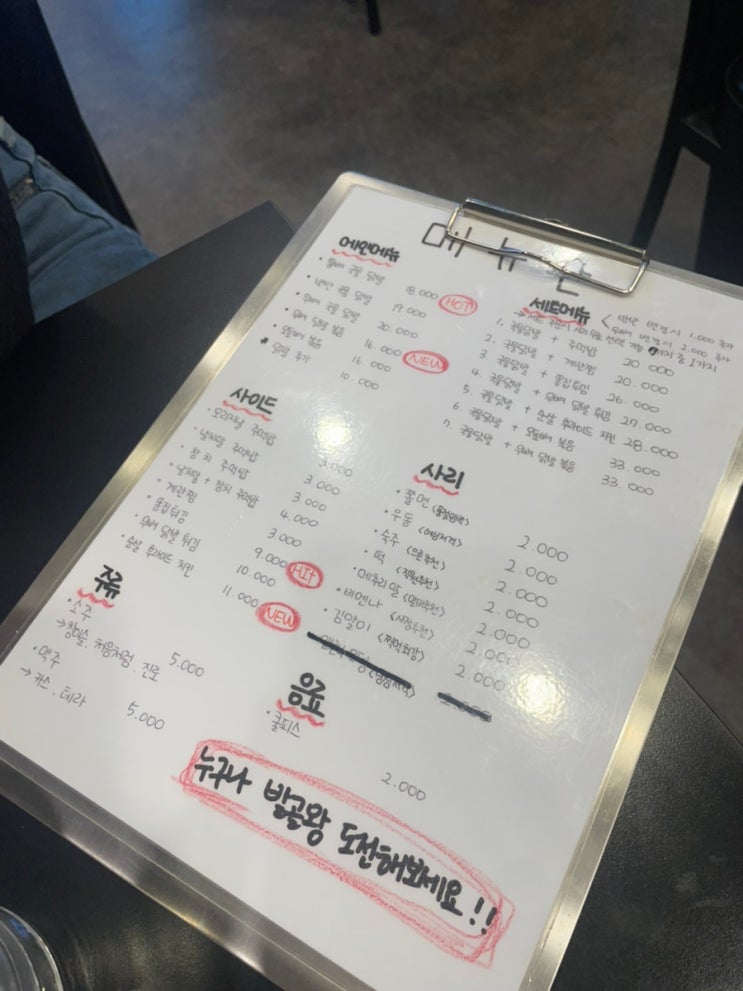 메뉴판
메인메뉴
통뼈 국물 닭발 18.000 HOT
반반 국물 닭발 19.000
무뼈 국물 닭발 20.000
무뼈 닭발 볶음 16.000 NEW
오돌뼈 볶음 16.000
닭발 추가 10.000
사이드
오리지날 주먹밥 3.000
날치알 주먹밥 3.000
참치 주먹밥 3.000
날치알 + 참치 주먹밥 4.000
계란찜 3.000
똥집튀김 9.000
무뼈 닭발 튀김 10.000 HIT
순살 후라이드 치킨 11.000 NEW
주류
소주 5.000
→참이슬, 처음처럼, 진로
맥주 5.000
→카스, 테라
세트메뉴 < 반반 변경시 1.000 추가
무뼈 변경시 2.000 추가
1. 국물닭발 + 주먹밥 20.000
2. 국물닭발 + 계란찜 20.000
3. 국물닭발 + 똥집튀김 26.000
4. 국물닭발 + 무뼈 닭발 튀김 27.000
5. 국물닭발 + 순살 후라이드 치킨 28.000
6. 국물닭발 + 오돌뼈 볶음 33.000
7. 국물닭발 + 무뼈 닭발 볶음 33.000
사리
쫄면 2.000
우동 2.000
숙주 2.000
떡 <직원추천> 2.000
메추리알 2.000
비엔나 <사장추천> 2.000
김말이 <찍먹최강> 2.000
음료
쿨피스 2.000
누구나 발골왕 도전해보세요!!